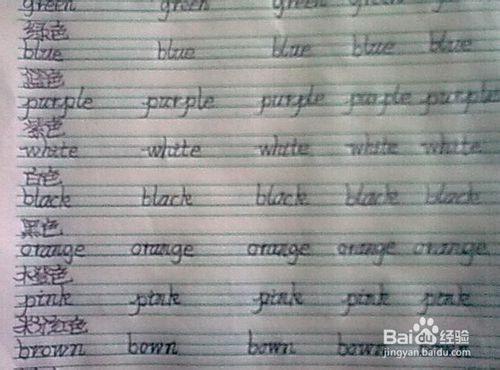 green green green green green
绿色
blue blue blue blue blue
蓝色
purple purple purple purple purple
紫色
white white white white white
白色
black black black black black
黑色
orange orange orange orange orange
水橙色
pink pink pink pink pink
粉红色
brown bown bown bown
Bai 经验
jingyan.baidu.com